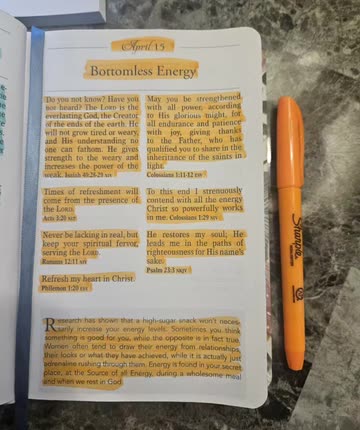 April 15
Bottomless Energy
Do you not know? Have you
not heard? The LORD is the
everlasting God, the Creator
of the ends of the earth. He
will not grow tired or weary,
and His understanding no
one can fathom. He gives
strength to the weary and
increases the power of the
weak. Isaiah 40:28-29 NIV
Times of refreshment will
come from the presence of
the LORD.
Acts 3:20 NLT
Never be lacking in zeal, but
keep your spiritual fervor,
serving the LORD.
Romans 12:11 NIV
Refresh my heart in Christ.
Philemon 1:20
May you be strengthened
with all power, according
to His glorious might, for
all endurance and patience
with joy, giving thanks
to the Father, who has
qualified you to share in the
inheritance of the saints in
light.
Colossians 1:11-12 ESV
To this end I strenuously
contend with all the energy
Christ so powerfully works
in me. Colossians 1:29 NIV
He restores my soul; He
leads me in the paths of
righteousness for His name's
sake.
Psalm 23:3 NKJV
Research has shown that a high-sugar snack won't neces-
sarily increase your energy levels. Sometimes you think
something is good for you, while the opposite is in fact true.
Women often tend to draw their energy from relationships,
their looks or what they have achieved, while it is actually just
adrenaline rushing through them. Energy is found in your secret
place, at the Source of all Energy, during a wholesome meal
and when we rest in God.
Sharpie